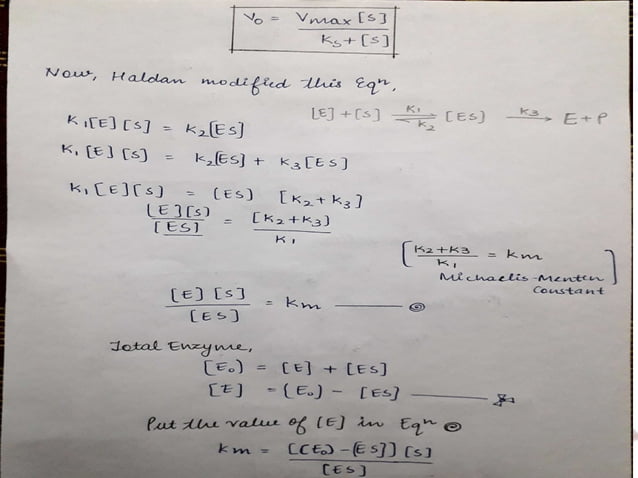 V₀ = Vmax [S] / Ks + [S]
Now, Haldan modified this Eqⁿ,
[E] + [S] ⇌ [ES] → E + P
K₁ K₂ K₃
K₁[E][S] = K₂[ES]
K₁[E][S] = K₂[ES] + K₃[ES]
K₁[E][S] = [ES] [K₂ + K₃]
[E][S] / [ES] = [K₂ + K₃] / K₁
[K₂ + K₃ / K₁ = Km
Michaelis-Menten
Constant]
[E] [S] / [ES] = Km ——— ◎
Total Enzyme,
[E₀) = [E] + [ES]
[E] = (E₀) - [ES] ———
Put the value of [E] in Eqⁿ ◎
Km = [(E₀) - [ES]] [S] / [ES]